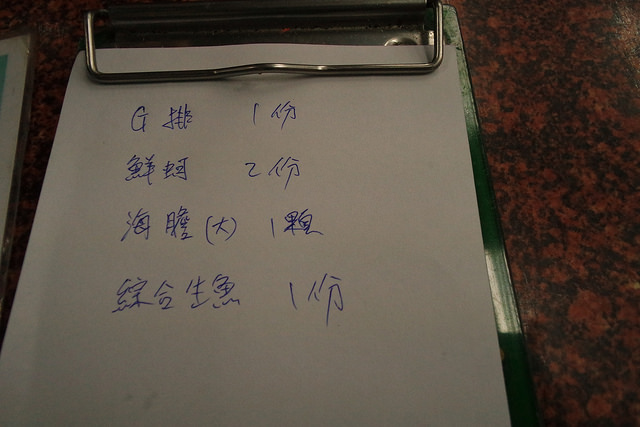 G排 1份
鮮蚵 2份
海膽(大) 1顆
綜合生魚 1份